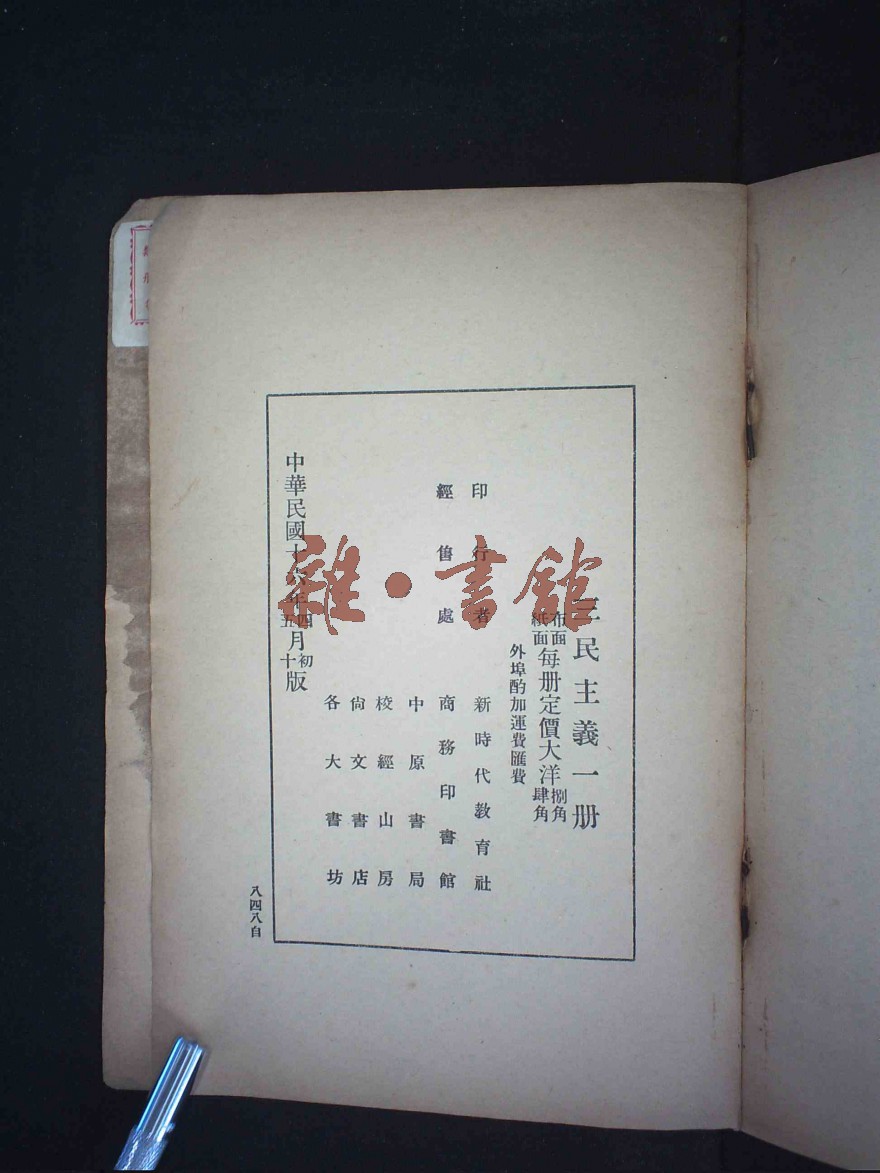 三民主義一册
布面
紙面
每册定價大洋
捌角
肆角
外埠酌加運費匯費
印行者
新時代教育社
經售處
商務印書館
中原書局
校經山房
尙文書店
各大書坊
中華民國十六年
四
五
月
初
十
版
八四八自
雜·書館